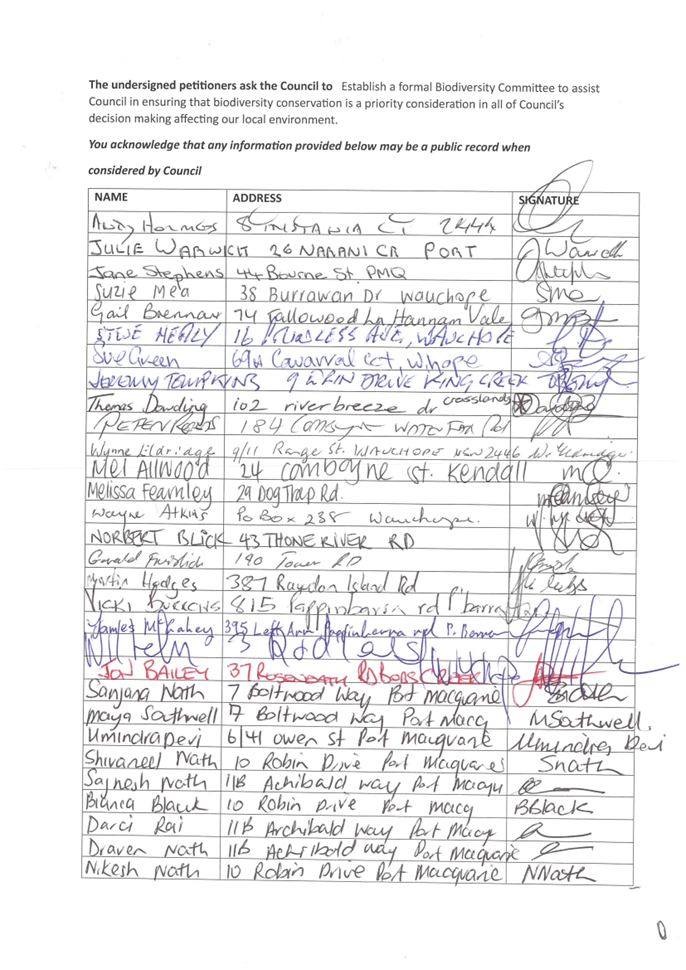 The undersigned petitioners ask the Council to Establish a formal Biodiversity Committee to assist
Council in ensuring that biodiversity conservation is a priority consideration in all of Council's
decision making affecting our local environment.
You acknowledge that any information provided below may be a public record when
considered by Council
NAME ADDRESS SIGNATURE
8 CT 2444
JULIE WARWICK 26 NARANI CR PORT
Jane Stephens 44 Bourne St. PMQ
Suzie Mea 38 Burrawan Dr Wauchope SMea
Gail Brennan 74 Tallowood Ln Hannam Vale
STEVE HEALY 16 AVE, WAUCHOPE
Sue Green Cct, Whope
JEREMY TOMPKINS 9 WREN DRIVE KING CREEK
Thomas Dowding 102 riverbreeze dr crosslands
PETER 184
Wynne Eldridge 9/11 Range St. WAUCHOPE NSW 2446 W. Eldridge
Mel Allwood 24 Comboyne St. Kendall
Melissa Fearnley 29 Dog Trap Rd.
Wayne Atkins Po Box 238 Wauchope.
NORBERT BLICK 43 THONE RIVER RD
Gerald 190 Tower RD
Martin Hedges 387 Rawdon Island Rd
VICKI 815 Pappinbarra rd P'barra
395 Left Arm Pappinbarra rd
JON BAILEY 37
Sanjana Nath 7 Boltwood Way Port Macquarie
Maya Southwell 7 Boltwood Way Port Macq MSouthwell.
Umindra Devi 6/41 Owen St Port Macquarie Umindra Devi
Shivaneel Nath 10 Robin Drive Port Macquarie Snath
Sajnesh Nath 11B Achibald way Port Macqu
Bianca Black 10 Robin Drive Port Macq BBlack
Darci Rai 11B Archibald Way Port Macq
Draven Nath 11B Achibald way Port Macquarie
Nikesh Nath 10 Robin Drive Port Macquarie NNath